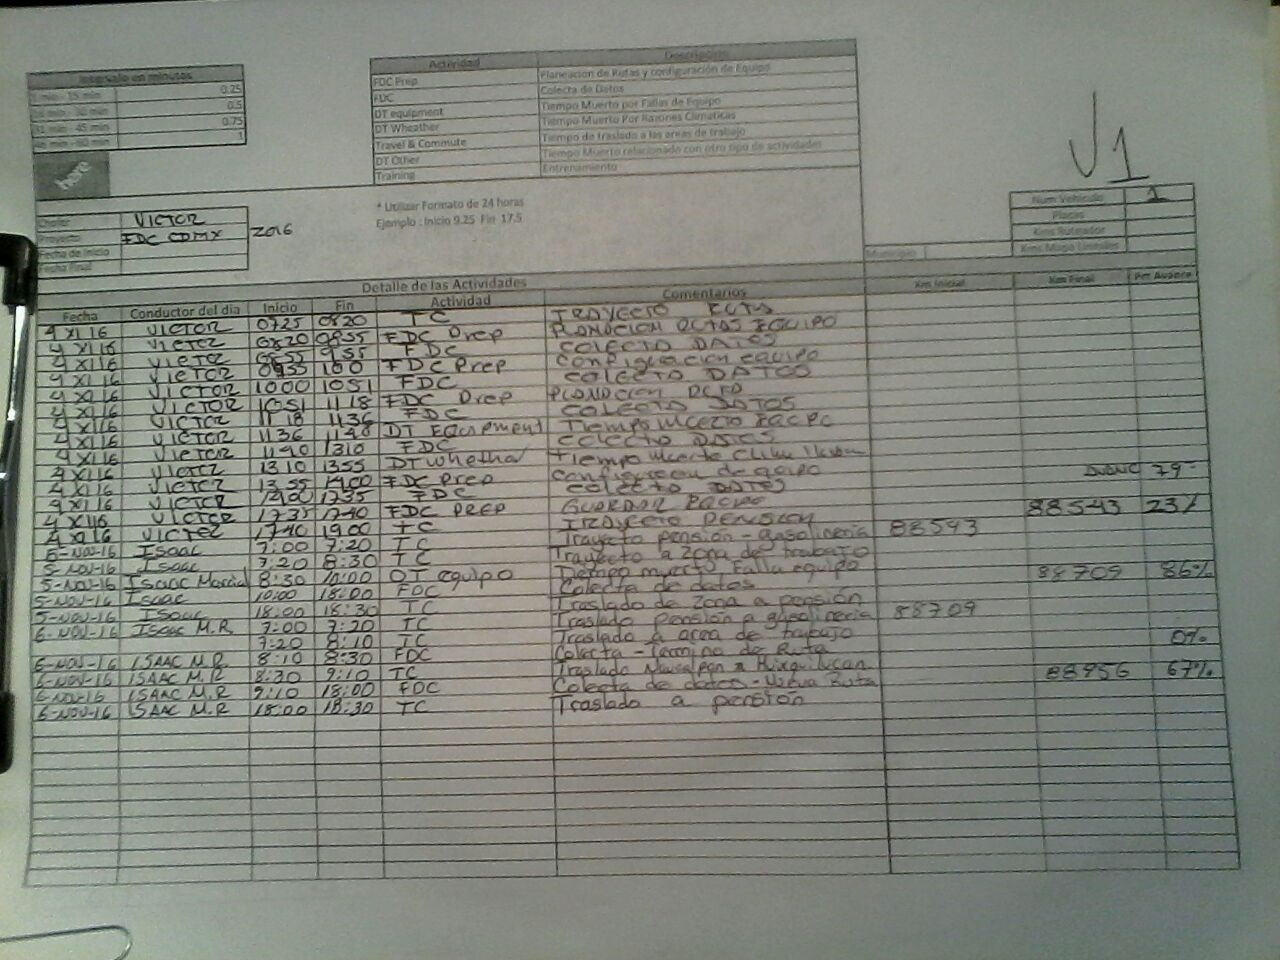 Intervalo en minutos
1 min - 15 min 0.25
16 min - 30 min 0.5
31 min - 45 min 0.75
46 min - 60 min 1
here
Actividad Descripción
FDC Prep Planeación de Rutas y configuración de Equipo
FDC Colecta de Datos
DT equipment Tiempo Muerto por Fallas de Equipo
DT Wheather Tiempo Muerto Por Razones Climaticas
Travel & Commute Tiempo de traslado a las areas de trabajo
DT Other Tiempo Muerto relacionado con otro tipo de actividades
Training Entrenamiento
* Utilizar Formato de 24 horas
Ejemplo : Inicio 9.25 Fin 17.5
J1
Chofer VICTOR
Proyecto FDC CDMX 2016
Fecha de Inicio
Fecha Final
Num Vehiculo 1
Placas
Kms Ruteador
Kms Mapa Lineales
Municipio
Detalle de las Actividades
Fecha Conductor del dia Inicio Fin Actividad Comentarios Km Inicial Km Final Por Avance
4 XI 16 VICTOR 0725 0820 TC TRAYECTO RUTA
4 XI 16 VICTOR 0820 0855 FDC Prep EQUIPO
4 XI 16 VICTOR 0855 955 FDC COLECTA DATOS
4 XI 16 VICTOR FDC Prep Configuracion equipo
4 XI 16 VICTOR 1000 1051 FDC COLECTA DATOS
4 XI 16 VICTOR 1051 1118 FDC Prep
4 XI 16 VICTOR 1118 1136 FDC COLECTA DATOS
4 XI 16 VICTOR 1136 1140 DT Equipment Tiempo Muerto
4 XI 16 VICTOR 1140 1310 FDC COLECTA DATOS
4 XI 16 VICTOR 1310 1355 DT whether Tiempo Muerto Clima
4 XI 16 VICTOR 1355 1400 FDC Prep Configuracion de equipo 79-
4 XI 16 VICTOR 1400 1735 FDC COLECTA DATOS
4 XI 16 VICTOR 1735 1740 FDC PREP GUARDAR EQUIPO 88543 23%
4 XI 16 VICTOR 1740 1900 TC TRAYECTO PENSION
5-NOV-16 Isaac 7:00 7:20 TC Trayecto pensión - gasolineria 88543
5-NOV-16 Isaac 7:20 8:30 TC Trayecto a Zona de trabajo
5-NOV-16 Isaac 8:30 10:00 DT equipo Tiempo muerto Falla equipo
5-NOV-16 Isaac 10:00 18:00 FDC Colecta de datos 88709 86%
5-NOV-16 Isaac 18:00 18:30 TC Traslado de Zona a pensión
6-NOV-16 Isaac M.R. 7:00 7:20 TC Traslado pensión a gasolineria 88709
7:20 8:10 TC Traslado a area de trabajo
6-NOV-16 ISAAC M.R 8:10 8:30 FDC Colecta - Termino de Ruta 0%
6-NOV-16 ISAAC M.R 8:30 9:10 TC Traslado Naucalpan a Huixquilucan
6-NOV-16 ISAAC M.R 9:10 18:00 FDC Colecta de datos - Nueva Ruta 88956 67%
6-NOV-16 ISAAC M.R 18:00 18:30 TC Traslado a pensión